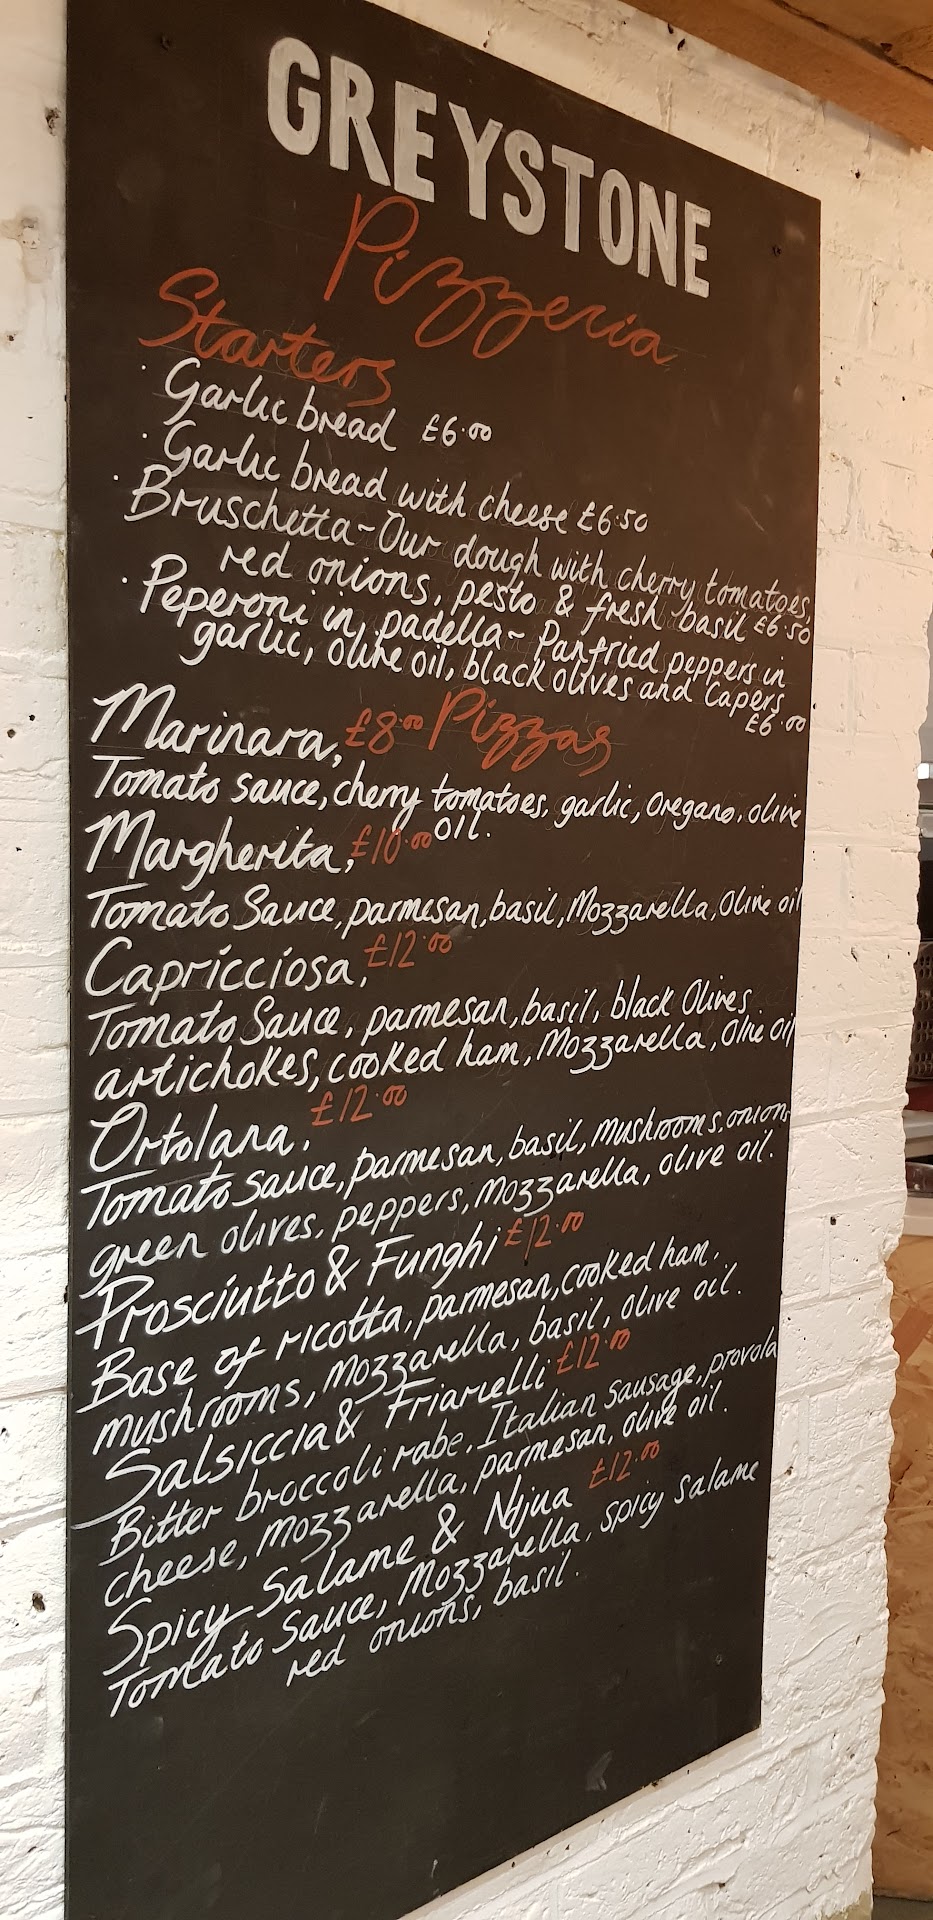 GREYSTONE
Pizzeria
Starters
· Garlic bread £6.00
· Garlic bread with cheese £6.50
· Bruschetta ~ Our dough with cherry tomatoes,
red onions, pesto & fresh basil £6.50
· Peperoni in padella ~ Panfried peppers in
garlic, olive oil, black olives and Capers
£6.00
Pizzas
Marinara, £8.00
Tomato sauce, cherry tomatoes, garlic, oregano, olive
oil.
Margherita, £10.00
Tomato Sauce, parmesan, basil, Mozzarella, Olive oil
Capricciosa, £12.00
Tomato Sauce, parmesan, basil, black Olives
artichokes, cooked ham, Mozzarella, Olive oil
Ortolana, £12.00
Tomato sauce, parmesan, basil, mushrooms, onions
green olives, peppers, mozzarella, olive oil.
Prosciutto & Funghi £12.00
Base of ricotta, parmesan, cooked ham.
mushrooms, mozzarella, basil, olive oil.
Salsiccia & Friarielli £12.00
Bitter broccoli rabe, Italian Sausage, provola
cheese, mozzarella, parmesan, olive oil.
Spicy Salame & Ndjua £12.00
Tomato Sauce, Mozzarella, spicy salame
red onions, basil.